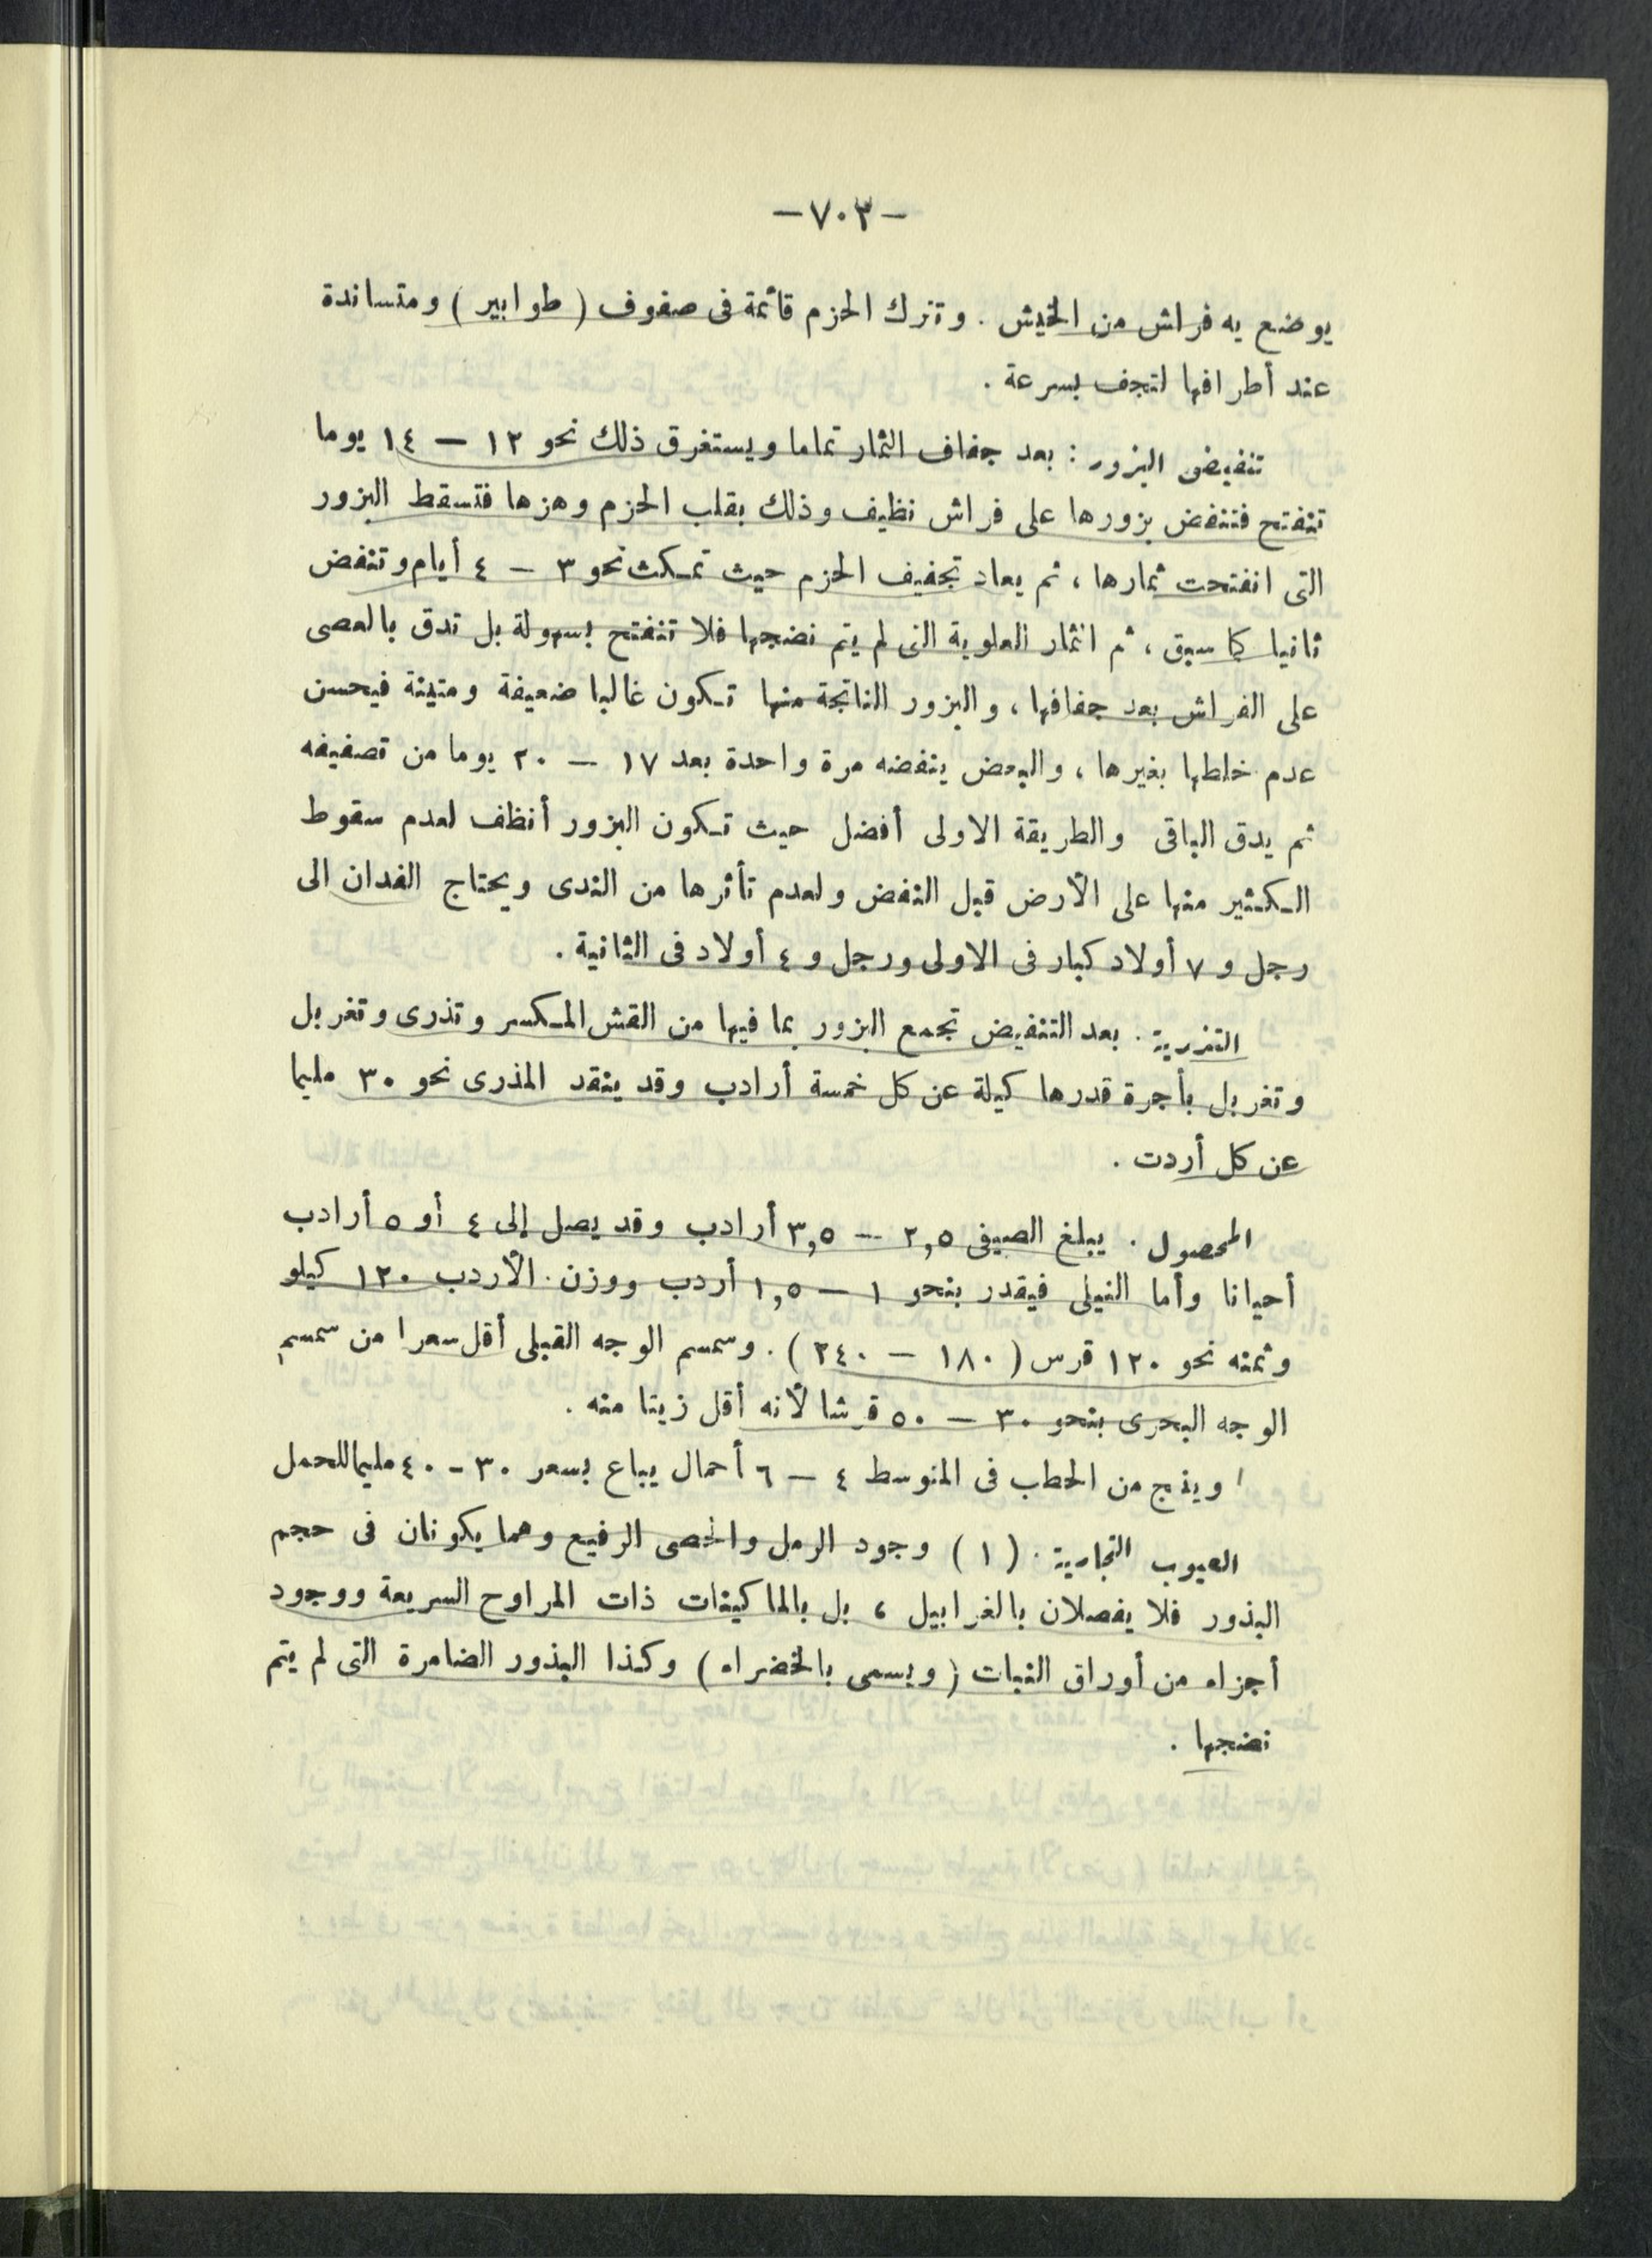 -٧٠٣-
يوضع به فراش من الخيش . وتترك الحزم قائمة فى صفوف ( طوابير ) ومتساندة
عند أطرافها لتجف بسرعة .
تنفيض البزور : بعد جفاف الثمار تماما ويستغرق ذلك نحو ١٢ – ١٤ يوما
تتفتح فتنفض بزورها على فراش نظيف وذلك بقلب الحزم وهزها فتسقط البزور
التى انفتحت ثمارها ، ثم يعاد تجفيف الحزم حيث تمكث نحو ٣ – ٤ أيام وتنفض
ثانيا كما سبق ، ثم الثمار العلوية التى لم يتم نضجها فلا تتفتح بسهولة بل تدق بالعصى
على الفراش بعد جفافها ، والبزور الناتجة منها تكون غالبا ضعيفة ومتينة فيحسن
عدم خلطها بغيرها ، والبعض ينفضه مرة واحدة بعد ١٧ – ٢٠ يوما من تصفيفه
ثم يدق الباقى والطريقة الاولى أفضل حيث تكون البزور أنظف لعدم سقوط
الكثير منها على الأرض قبل النفض ولعدم تأثرها من الندى ويحتاج الفدان الى
رجل و ٧ أولاد كبار فى الاولى ورجل و ٤ أولاد فى الثانية .
التذرية . بعد التنفيض تجمع البزور بما فيها من القش المكسر وتذرى وتغربل
وتغربل بأجرة قدرها كيلة عن كل خمسة أرادب وقد ينقد المذرى نحو ٣٠ مليما
عن كل أردت .
المحصول . يبلغ الصيفى ٢,٥ – ٣,٥ أرادب وقد يصل إلى ٤ أو ٥ أرادب
أحيانا وأما النيلى فيقدر بنحو ١ – ١,٥ أردب ووزن . الأردب ١٢٠ كيلو
وثمنه نحو ١٢٠ قرس ( ١٨٠ – ٢٤٠ ) . وسمسم الوجه القبلى أقل سعرا من سمسم
الوجه البحرى بنحو ٣٠ – ٥٠ قرشا لأنه أقل زيتا منه .
وينتج من الحطب فى المتوسط ٤ – ٦ أحمال يباع بسعر ٣٠ - ٤٠ مليما للحمل
العيوب التجارية . ( ١ ) وجود الرمل والحصى الرفيع وهما يكونان فى حجم
البذور فلا يفصلان بالغرابيل ، بل بالماكينات ذات المراوح السريعة ووجود
أجزاء من أوراق النبات ( ويسمى بالخضراء ) وكذا البذور الضامرة التى لم يتم
نضجها .